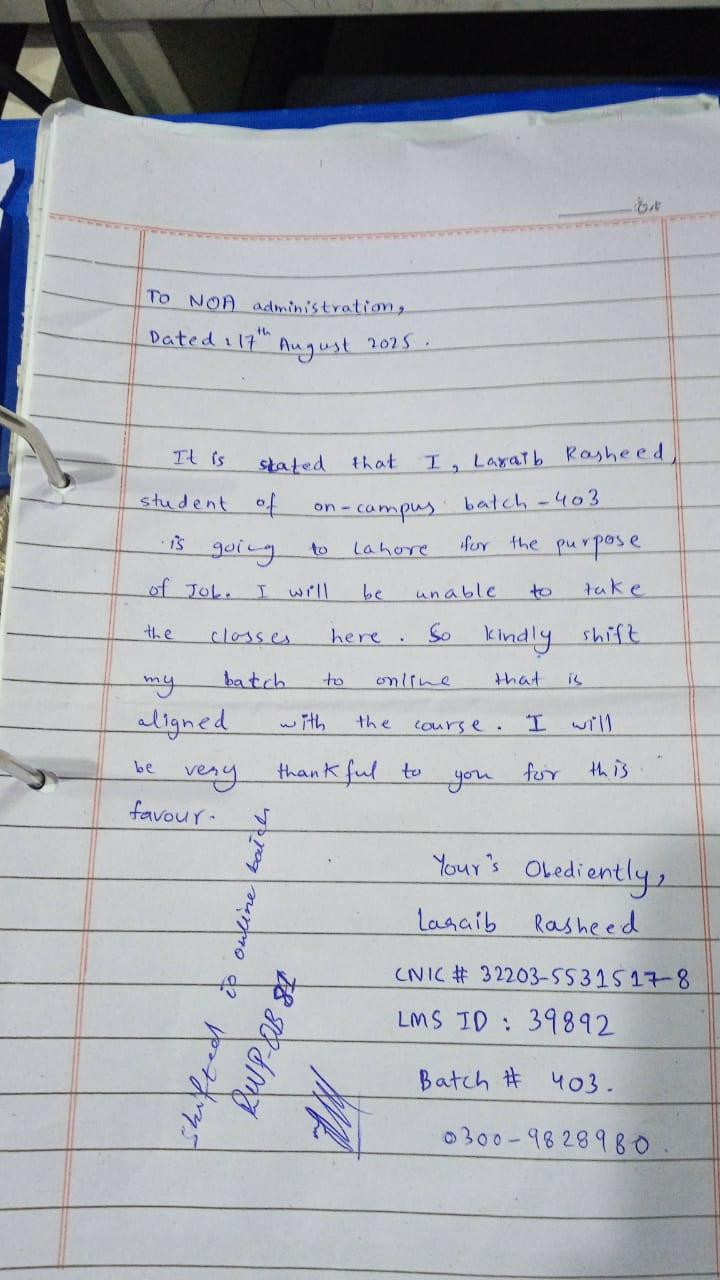 To NOA administration,
Dated : 17th August 2025 .
It is stated that I, Laraib Rasheed,
student of on-campus batch - 403
is going to Lahore for the purpose
of Job. I will be unable to take
the classes here . So kindly shift
my batch to online that is
aligned with the course . I will
be very thankful to you for this
favour.
Your's Obediently,
Laraib Rasheed
CNIC # 32203-5531517-8
LMS ID : 39892
Batch # 403.
0300-9828980.
Shifted to online batch
RWP-OB 81